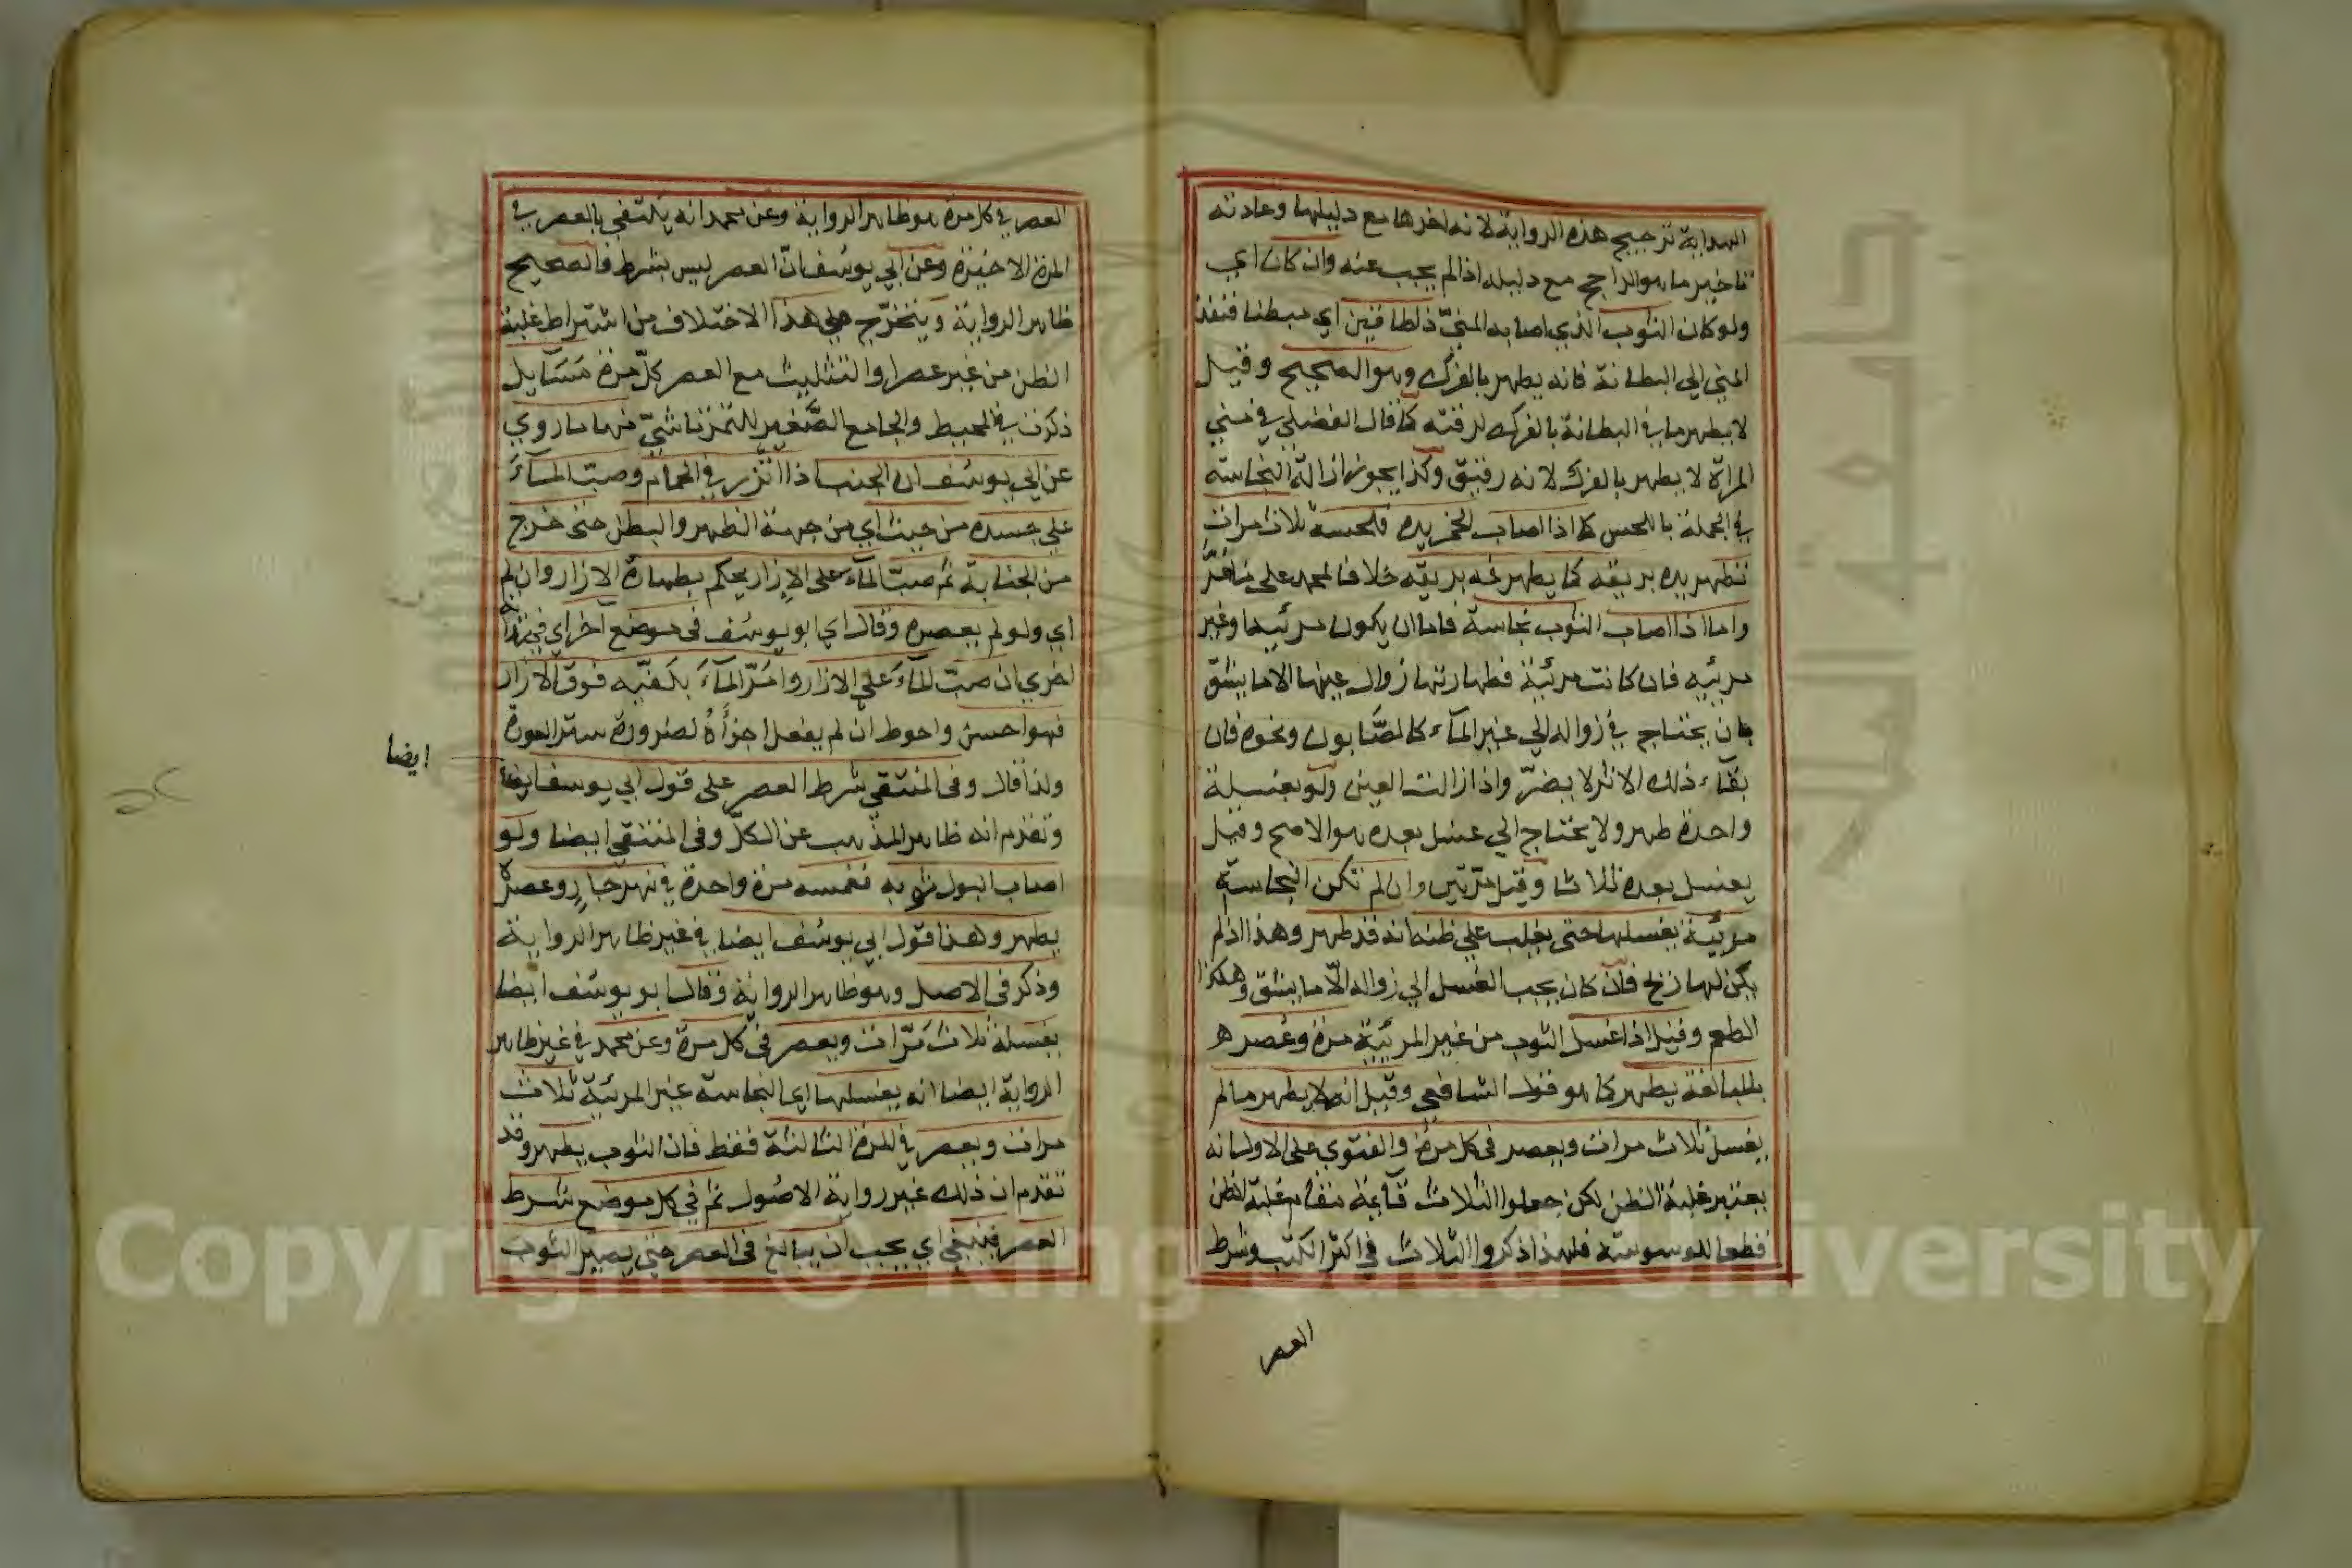 الهداية ترجيح هذه الرواية لانه اخرها مع دليلها وعادته
تاخير ما هو الراجح مع دليله اذا لم يجب عنه وان كان اي
ولو كان الثوب الذي اصابه المنيّ ذا طاقين اي مبطنا فنفذ
المني الي البطانة فانه يطهر بالفرك وهو الصحيح وقيل
لا يطهر ما في البطانة بالفرك لرقته كما قال الفضلي في مني
المراة لا يطهر بالفرك لانه رقيق وكذا يجوز ازالة النجاسة
في الجملة باللحس كما اذا اصاب الخمر يده فلحسه ثلاث مرات
تطهر يده بريقه كما يطهر فمه بريقه خلافا لمحمد علي ما مرّ
واما اذا اصاب الثوب نجاسة فاما ان يكون مرئية او غير
مرئيه فان كانت مرئية فطهارتها زوال عينها الا ما يشق
بان يحتاج في زواله الي غير المآء كالصّابون ونحوه فان
بقآء ذلك الاثر لا يضرّ واذا زالت العين ولو بغسلة
واحدة طهر ولا يحتاج الي غسل بعده هو الاصح وقيل
يغسل بعده ثلاثا وقيل مرّتين وان لم تكن النجاسة
مرئية يغسلها حتى يغلب علي ظنه انه قد طهر وهذا اذا لم
يكن لها ريح فان كان يجب الغسل الي زواله الّا ما يشق وهكذا
الطعم وقيل اذا غسل الثوب من غير المرئية مرة وعصره
بالمبالغة يطهر كما هو قول الشافعي وقيل انه لا يطهر ما لم
يغسل ثلاث مرات ويعصر في كل مرة والفتوي على الاول انه
يعتبر غلبة الظن لكن جعلوا الثلاث قآئمة مقام غلبة الظن
قطعا للوسوسة فلهذا ذكروا الثلاث في اكثر الكتب وشرط
العصر
العصر في كل مرة هو ظاهر الرواية وعن محمد انه يكتفي بالعصر في
المرة الاخيرة وعن ابي يوسف انّ العصر ليس بشرط فالصحيح
ظاهر الرواية ويتخرّج علي هذا الاختلاف من اشتراط غلبة
الظن من غير عصر او التثليث مع العصر كلّ مرة مسآيل
ذكرت في المحيط والجامع الصّغير للتمرتاشيّ منها ما روي
عن ابي يوسف ان الجنب اذا اتّزر في الحمام وصبّ المآء
علي جسده من حيث اي من جهة الظهر والبطن حتى خرج
من الجنابة ثم صبّ المآء على الازار يحكم بطهارة الازار وان لم
اي ولو لم يعصره وقال اي ابو يوسف في موضع آخر اي في رواية
اخري ان صبّ المآء علي الازار وامرّ المآء بكفّيه فوق الازار
فهو احسن واحوط ان لم يفعل اجزأه لضرورة ستر العورة
ولذا قال وفي المنتقي شرط العصر على قول ابي يوسف ايضا
ايضا
وتقدم انه ظاهر المذهب عن الكلّ وفي المنتقي ايضا ولو
اصاب البول ثوبه فغمسه مرة واحدة في نهر جارٍ وعصره
يطهر وهذا قول ابي يوسف ايضا في غير ظاهر الرواية
وذكر في الاصل وهو ظاهر الرواية وقال ابو يوسف ايضا
يغسله ثلاث مرّات ويعصر في كل مرة وعن محمد في غير ظاهر
الرواية ايضا انه يغسلها اي النجاسة غير المرئية ثلاث
مرات ويعصر في المرة الثالثة فقط فان الثوب يطهر وقد
تقدم ان ذلك غير رواية الاصول ثم في كل موضع شرط
العصر فينبغي اي يجب ان يبالغ في العصر حتي يصير الثوب
Copyright © King Saud University